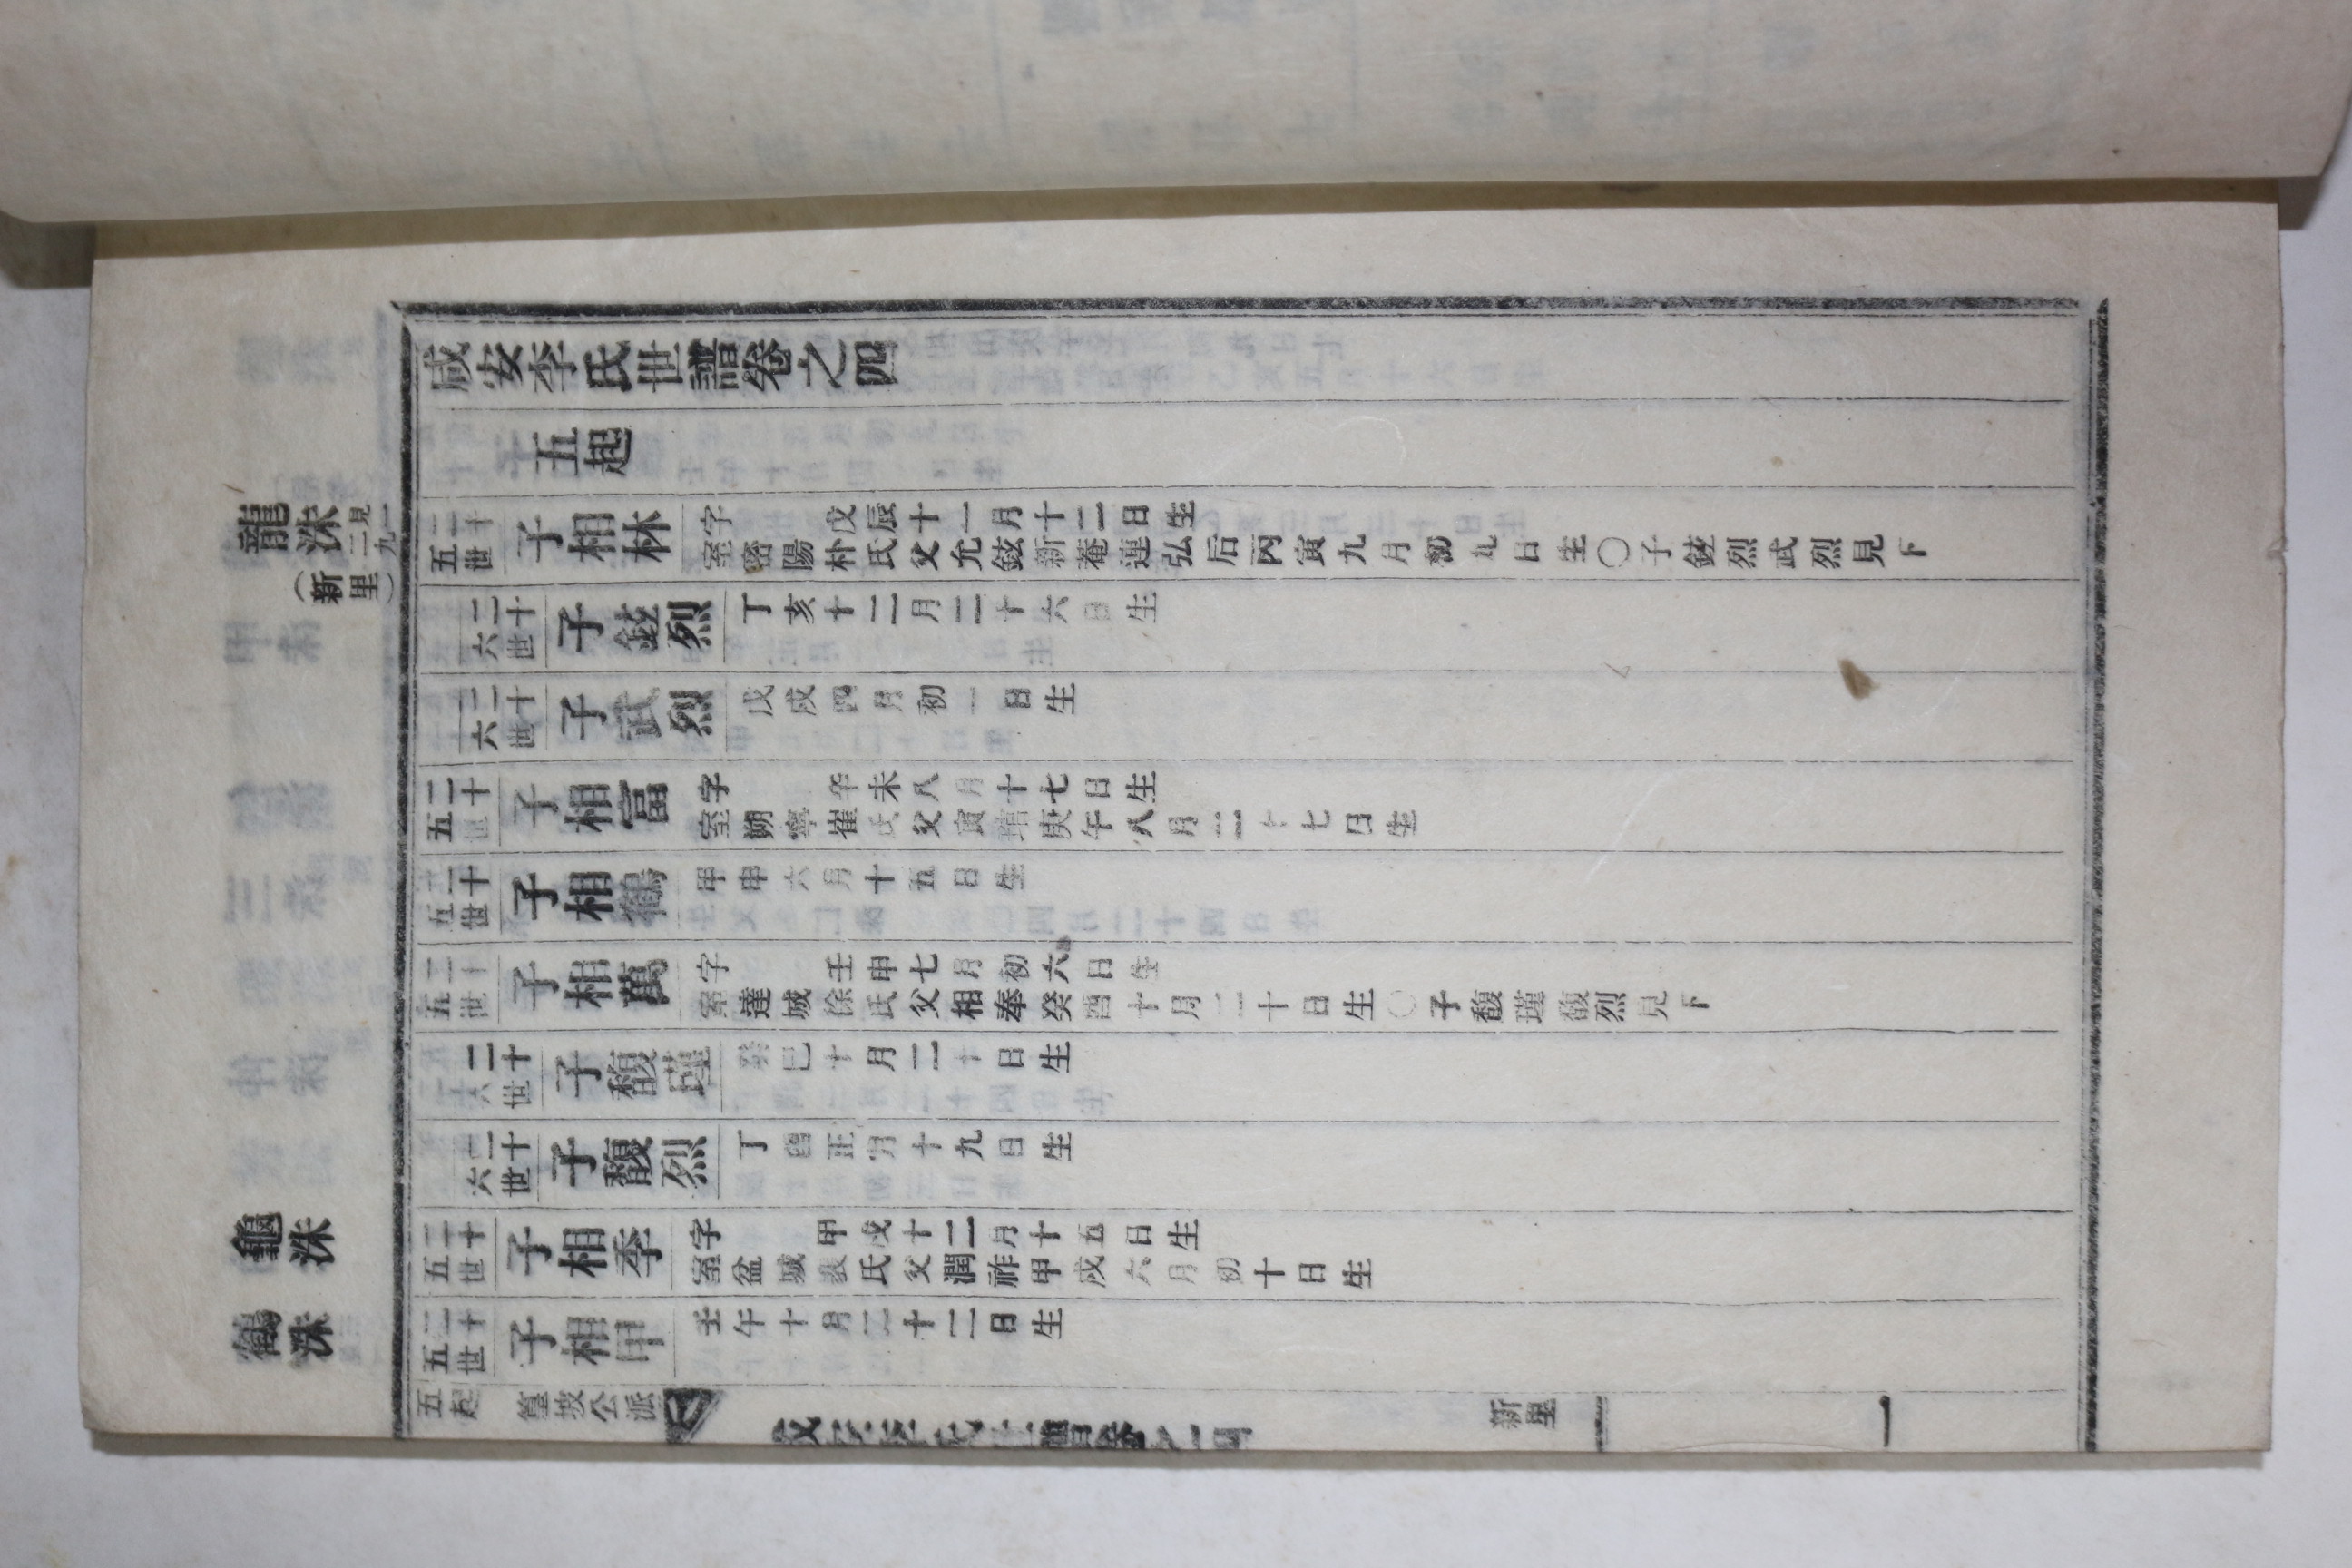 咸安李氏世譜卷之四
五起
龍洙 見一二九
(新里)
二十五世 子相林 字 戊辰十一月十二日生
室密陽朴氏父允鉉新菴連弘后丙寅九月初九日生○子鉉烈武烈見下
二十六世 子鉉烈 丁亥十二月二十六日生
二十六世 子武烈 戊戌四月初一日生
二十五世 子相富 字 辛未八月十七日生
室朔寧崔氏父寅琯庚午八月二十七日生
二十五世 子相鶴 甲申六月十五日生
二十五世 子相萬 字 壬申七月初六日生
室達城徐氏父相奉癸酉十月二十日生○子馥瑾馥烈見下
二十六世 子馥瑾 癸巳十月二十日生
二十六世 子馥烈 丁酉正月十九日生
龜洙
二十五世 子相季 字 甲戌十二月十五日生
室盆城裵氏父潤祚甲戌六月初十日生
鶴洙
二十五世 子相甲 壬午十月二十二日生
五起 篁坡公派
咸安李氏世譜卷之四
新里
一